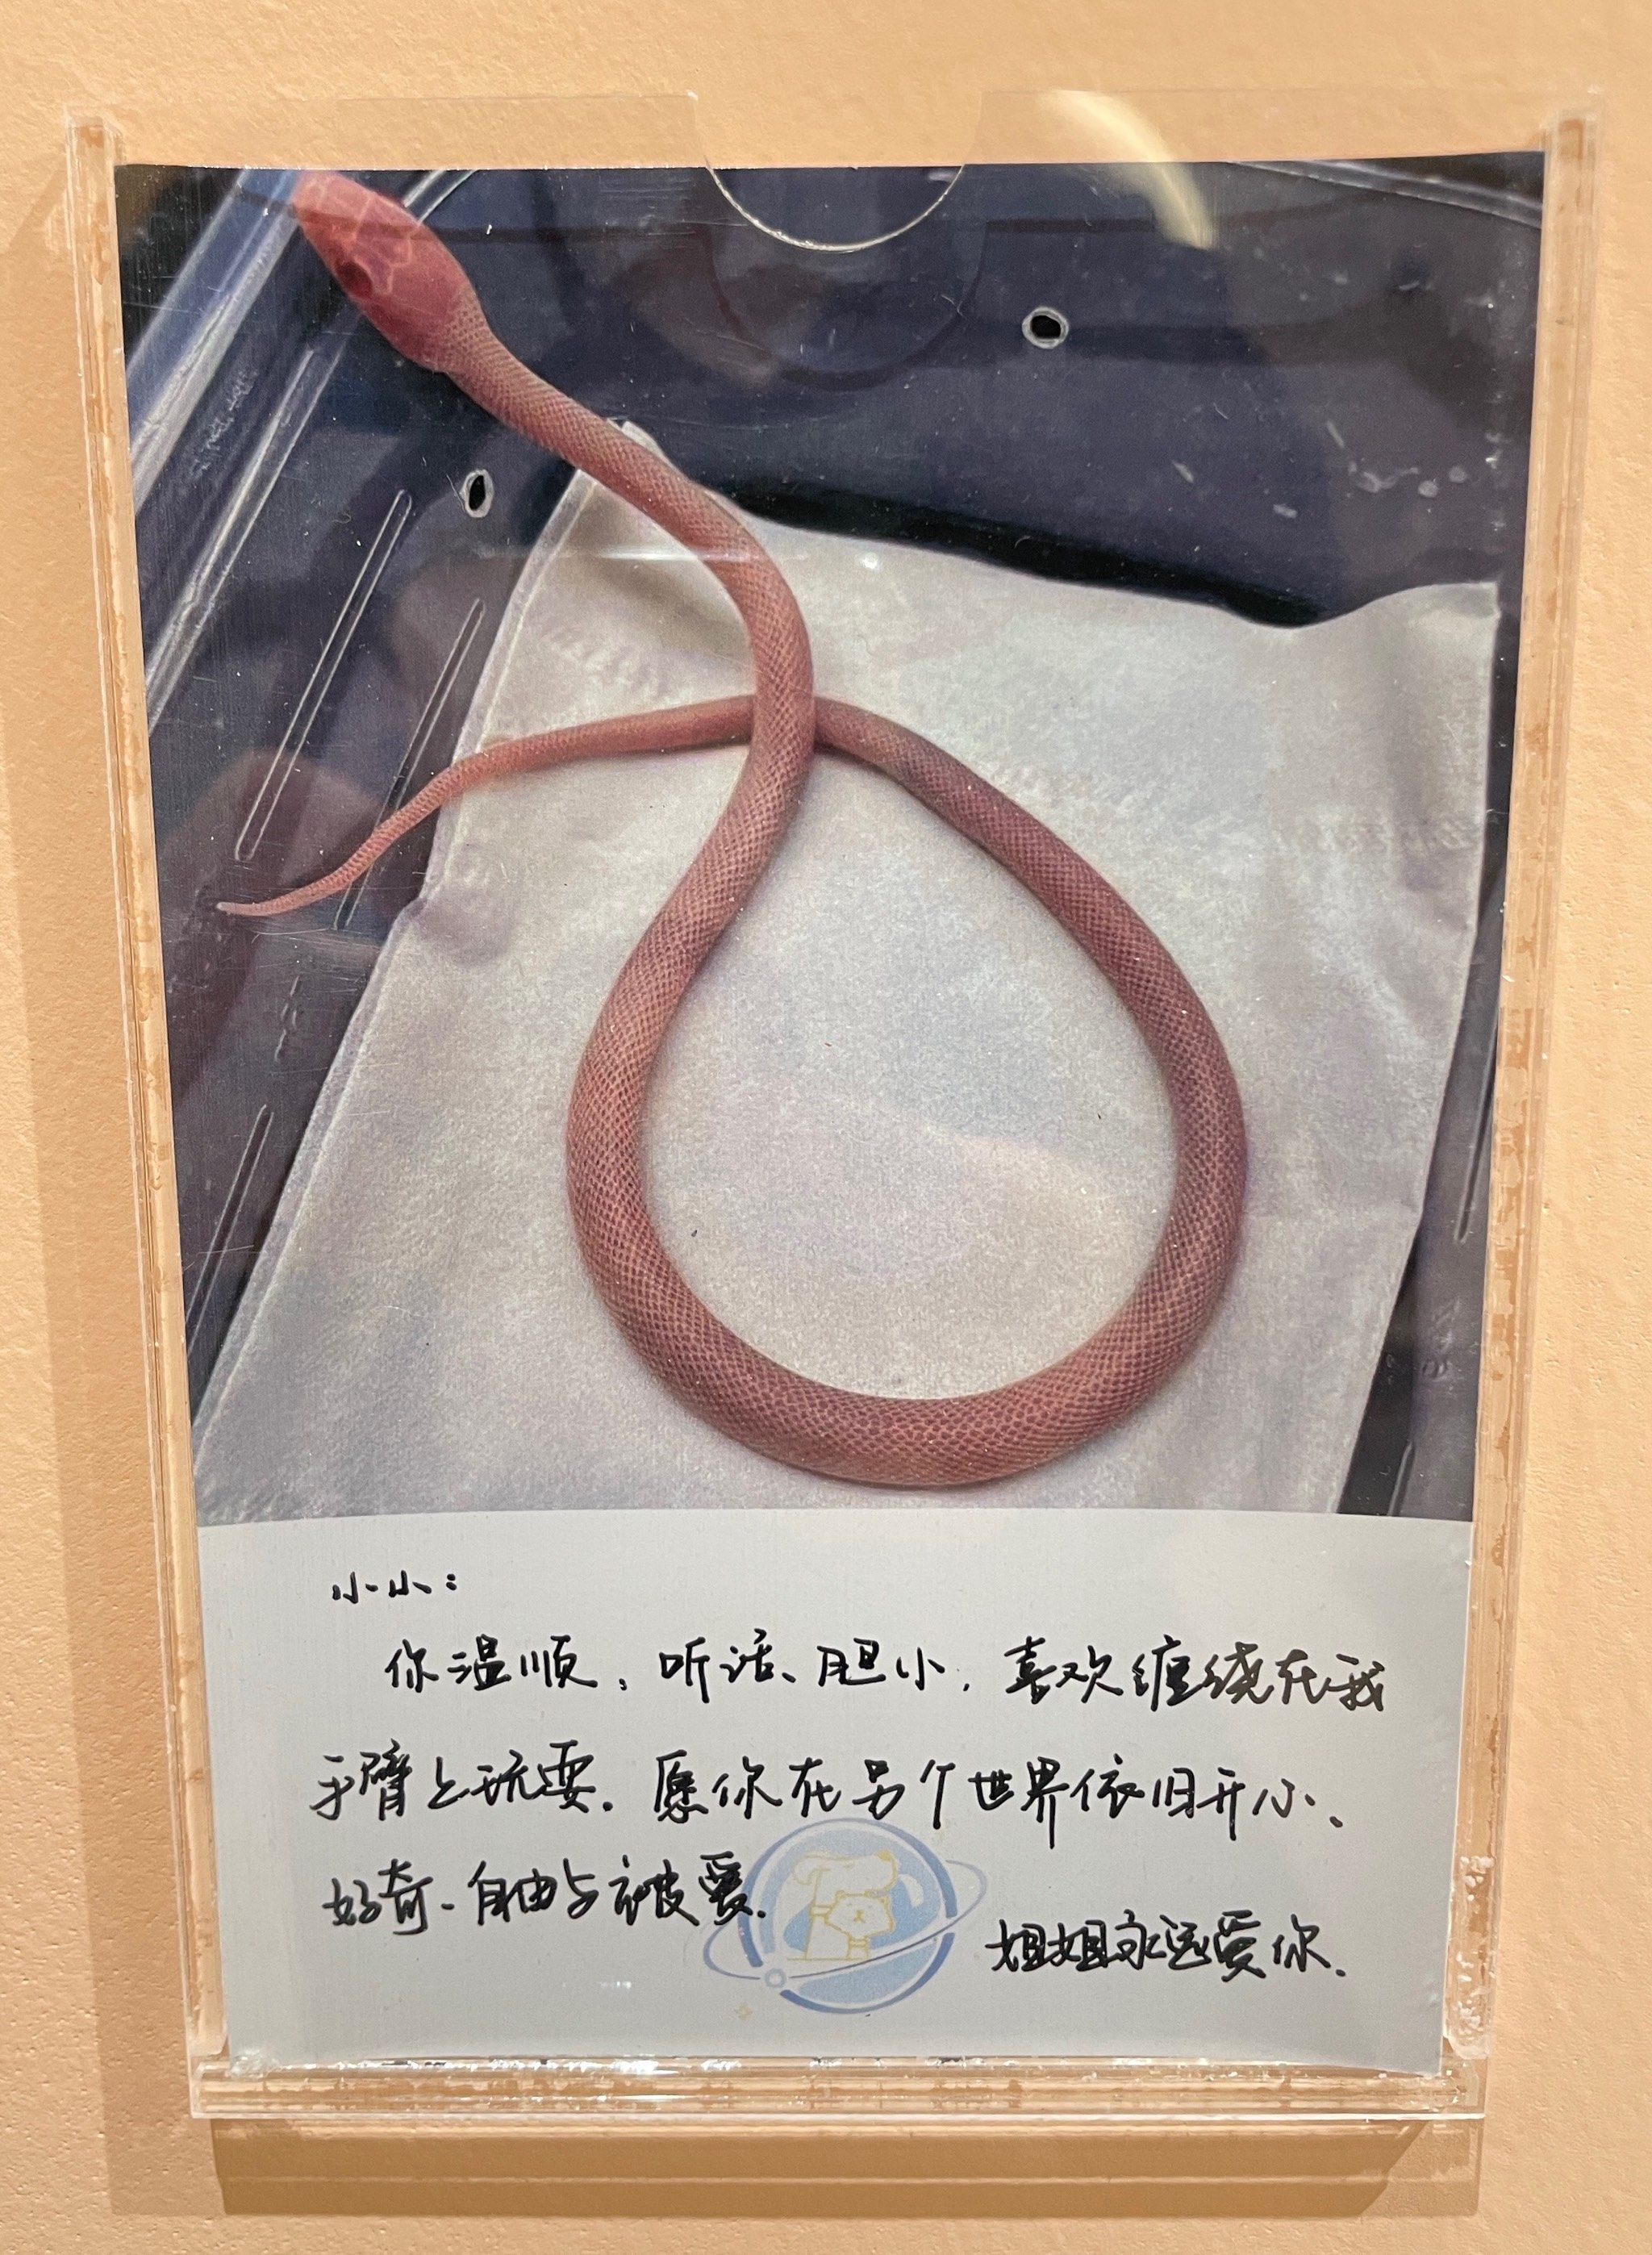 小小：
你温顺、听话、胆小，喜欢缠绕在我
手臂上玩耍．愿你在另个世界依旧开心、
好奇、自由与被爱．
姐姐永远爱你．